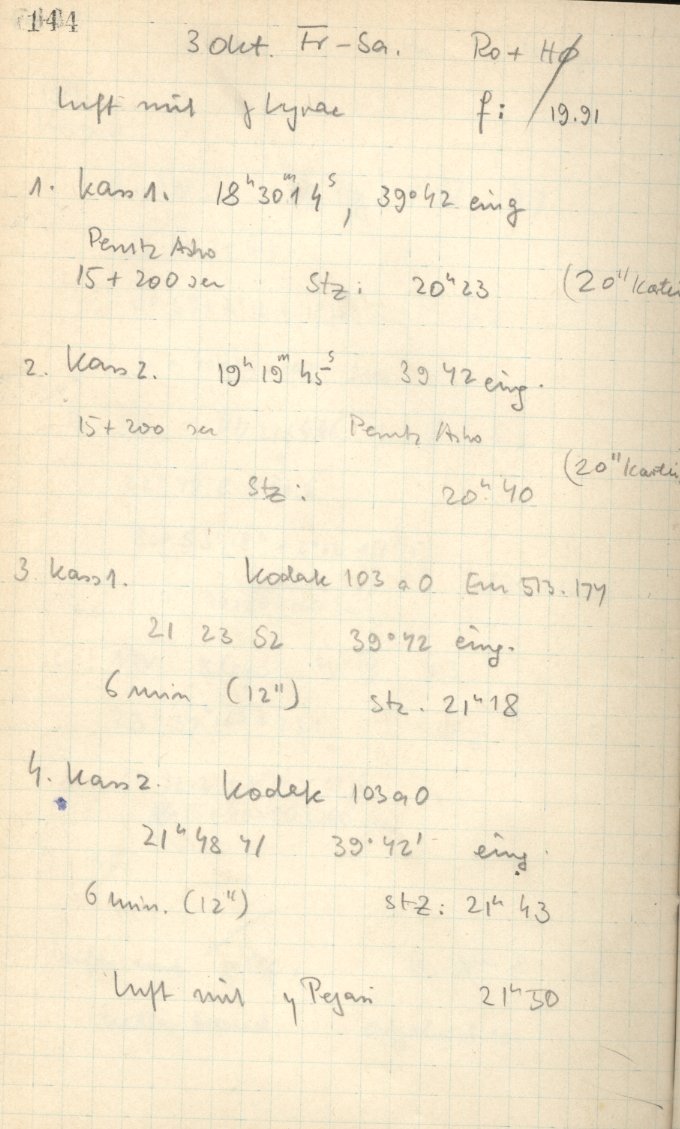 144
3 Okt. Fr-Sa. Ro + HØ
Luft mit γ Lyrae f: 19.91
1. Kass 1. 18ʰ30ᵐ14ˢ, 39°42 eing
Perutz Astro
15 + 200 sec Stz: 20ʰ23 (20"
2. Kass 2. 19ʰ19ᵐ45ˢ 39 42 eing.
15 + 200 sec Perutz Astro
(20"
Stz: 20ʰ40
3 Kass 1. Kodak 103 a O Em 513.174
21 23 52 39°42 eing.
6 min (12") Stz. 21ʰ18
4. Kass 2. Kodak 103aO
21ʰ48 41 39°42' eing.
6 min. (12") Stz: 21ʰ 43
Luft mit η Pegasi 21ʰ50